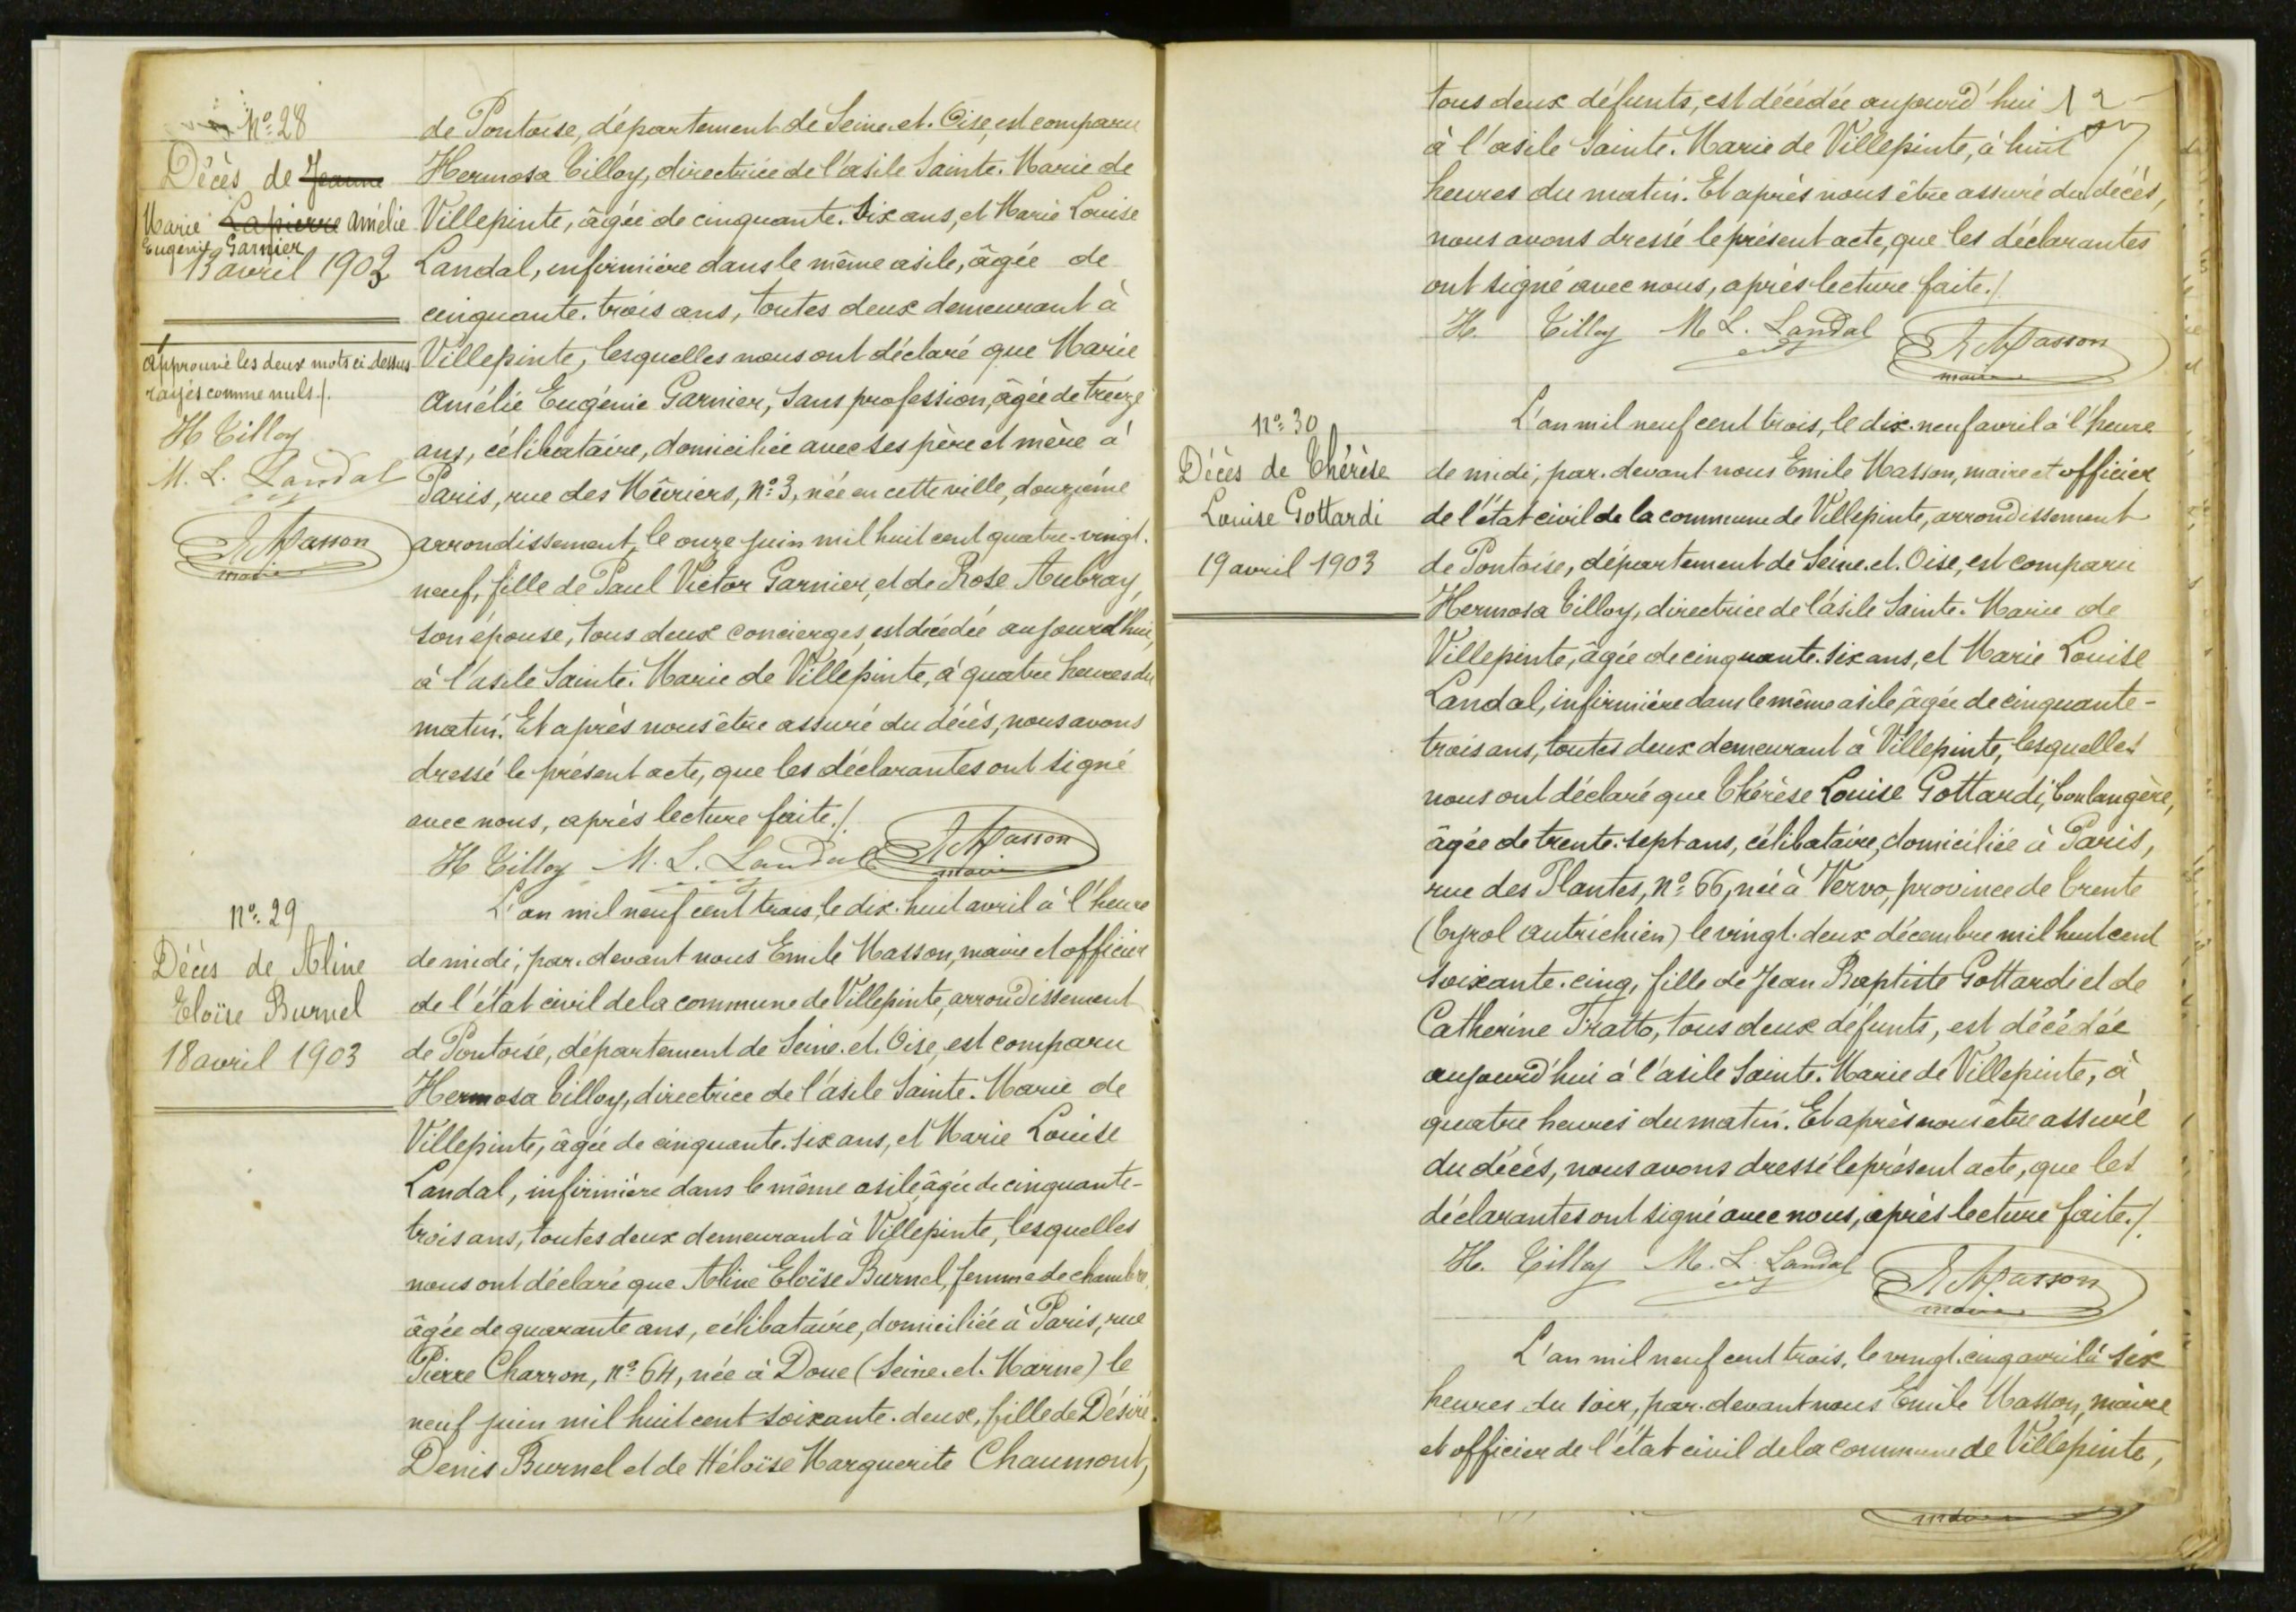 Nº 28
Décès de Jeanne
Marie Lapierre Amélie
Eugénie Garnier
13 avril 1903
Approuvé les deux mots ci-dessus
rayés comme nuls ./.
H Tilloy
M. L. Landal
E Masson
maire
de Pontoise, département de Seine-et-Oise, est comparu
Hermosa Tilloy, directrice de l'asile Sainte-Marie de
Villepinte, âgée de cinquante-six ans, et Marie Louise
Landal, infirmière dans le même asile, âgée de
cinquante-trois ans, toutes deux demeurant à
Villepinte, lesquelles nous ont déclaré que Marie
Amélie Eugénie Garnier, sans profession, âgée de treize
ans, célibataire, domiciliée avec ses père et mère à
Paris, rue des Mûriers, nº 3, née en cette ville, douzième
arrondissement, le onze juin mil huit cent quatre-vingt-
neuf, fille de Paul Victor Garnier, et de Rose Aubray,
son épouse, tous deux concierges, est décédée aujourd'hui,
à l'asile Sainte-Marie de Villepinte, à quatre heures du
matin. Et après nous être assuré du décès, nous avons
dressé le présent acte, que les déclarantes ont signé
avec nous, après lecture faite ./.
H Tilloy M. L. Landal E Masson
maire
nº 29
Décès de Aline
Eloïse Burnel
18 avril 1903
L'an mil neuf cent trois, le dix-huit avril à l'heure
de midi, par-devant nous Emile Masson, maire et officier
de l'état civil de la commune de Villepinte, arrondissement
de Pontoise, département de Seine-et-Oise, est comparu
Hermosa Tilloy, directrice de l'asile Sainte-Marie de
Villepinte, âgée de cinquante-six ans, et Marie Louise
Landal, infirmière dans le même asile, âgée de cinquante-
trois ans, toutes deux demeurant à Villepinte, lesquelles
nous ont déclaré que Aline Eloïse Burnel, femme de chambre,
âgée de quarante ans, célibataire, domiciliée à Paris, rue
Pierre Charron, nº 64, née à Doue (Seine-et-Marne) le
neuf juin mil huit cent soixante-deux, fille de Désiré
Denis Burnel et de Héloïse Marguerite Chaumont,
tous deux défunts, est décédée aujourd'hui 12
à l'asile Sainte-Marie de Villepinte, à huit
heures du matin. Et après nous être assuré du décès,
nous avons dressé le présent acte, que les déclarantes
ont signé avec nous, après lecture faite ./.
H. Tilloy M. L. Landal E Masson
maire
nº 30
Décès de Thérèse
Louise Gottardi
19 avril 1903
L'an mil neuf cent trois, le dix-neuf avril à l'heure
de midi, par-devant nous Emile Masson, maire et officier
de l'état civil de la commune de Villepinte, arrondissement
de Pontoise, département de Seine-et-Oise, est comparu
Hermosa Tilloy, directrice de l'asile Sainte-Marie de
Villepinte, âgée de cinquante-six ans, et Marie Louise
Landal, infirmière dans le même asile, âgée de cinquante-
trois ans, toutes deux demeurant à Villepinte, lesquelles
nous ont déclaré que Thérèse Louise Gottardi, boulangère,
âgée de trente-sept ans, célibataire, domiciliée à Paris,
rue des Plantes, nº 66, née à Vervo, province de Trente
(Tyrol autrichien) le vingt-deux décembre mil huit cent
soixante-cinq, fille de Jean Baptiste Gottardi et de
Catherine Tratto, tous deux défunts, est décédée
aujourd'hui à l'asile Sainte-Marie de Villepinte, à
quatre heures du matin. Et après nous être assuré
du décès, nous avons dressé le présent acte, que les
déclarantes ont signé avec nous, après lecture faite ./.
H. Tilloy M. L. Landal E Masson
maire
L'an mil neuf cent trois, le vingt-cinq avril à six
heures du soir, par-devant nous Emile Masson, maire
et officier de l'état civil de la commune de Villepinte,
maire